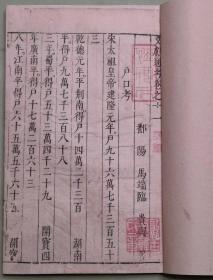 文獻通考卷之十
鄱陽 馬端臨 貴與
戶口考
宋太祖皇帝建隆元年戶九十六萬七千三百五十
三
乾德元年平荊南得戶十四萬二千三百 湖南
平得戶九萬七千三百八十八
三年蜀平得戶五十三萬四千二十九 開寶四
年廣南平得戶十七萬二百六十三
八年江南平得戶六十五萬五千六十五